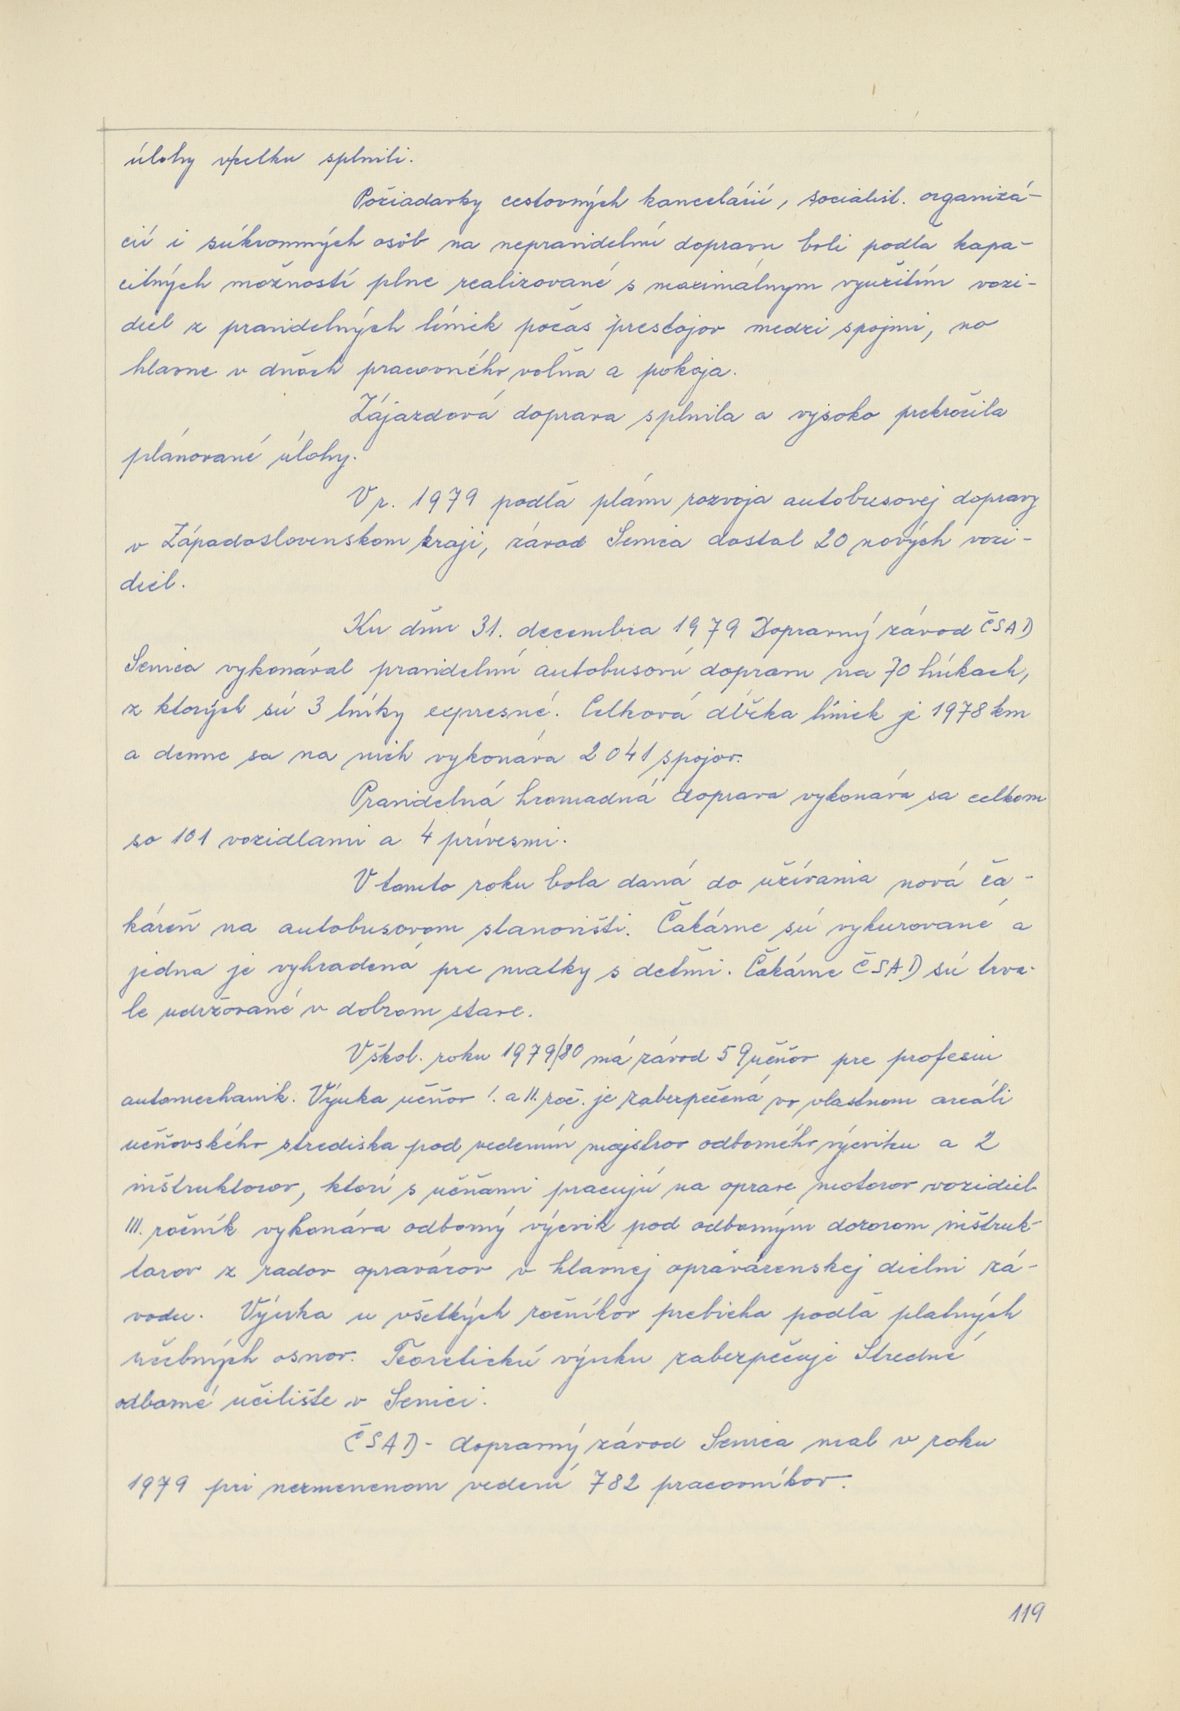 úlohy vcelku splnili.
Požiadavky cestovných kancelárií, socialist. organizá-
cií i súkromných osôb na nepravidelnú dopravu boli podľa kapa-
citných možností plne realizované s maximálnym využitím vozi-
diel z pravidelných liniek počas prestojov medzi spojmi, no
hlavne v dňoch pracovného voľna a pokoja.
Zájazdová doprava splnila a vysoko prekročila
plánované úlohy.
V r. 1979 podľa plánu rozvoja autobusovej dopravy
v Západoslovenskom kraji, závod Senica dostal 20 nových vozi-
diel.
Ku dňu 31. decembra 1979 Dopravný závod ČSAD
Senica vykonával pravidelnú autobusovú dopravu na 70 linkách,
z ktorých sú 3 linky expresné. Celková dĺžka liniek je 1978 km
a denne sa na nich vykonáva 2 041 spojov.
Pravidelná hromadná doprava vykonáva sa celkom
so 101 vozidlami a 4 prívesmi.
V tomto roku bola daná do užívania nová ča-
káreň na autobusovom stanovišti. Čakárne sú vykurované a
jedna je vyhradená pre matky s deťmi. Čakárne ČSAD sú trva-
le udržované v dobrom stave.
V škol. roku 1979/80 má závod 59 učňov pre profesiu
automechanik. Výuka učňov I. a II. roč. je zabezpečená vo vlastnom areáli
učňovského strediska pod vedením majstrov odborného výcviku a 2
inštruktorov, ktorí s učňami pracujú na oprave motorov vozidiel.
III. ročník vykonáva odborný výcvik pod odborným dozorom inštruk-
torov z radov opravárov v hlavnej opravárenskej dielni zá-
vodu. Výuka u všetkých ročníkov prebieha podľa platných
učebných osnov. Teoretickú výuku zabezpečuje Stredné
odborné učilište v Senici.
ČSAD - dopravný závod Senica mal v roku
1979 pri nezmenenom vedení 782 pracovníkov.
119